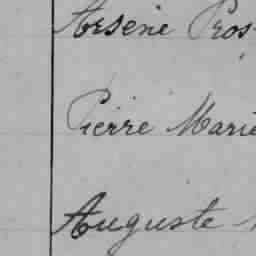 Arsène Pros
Pierre Marie
Auguste